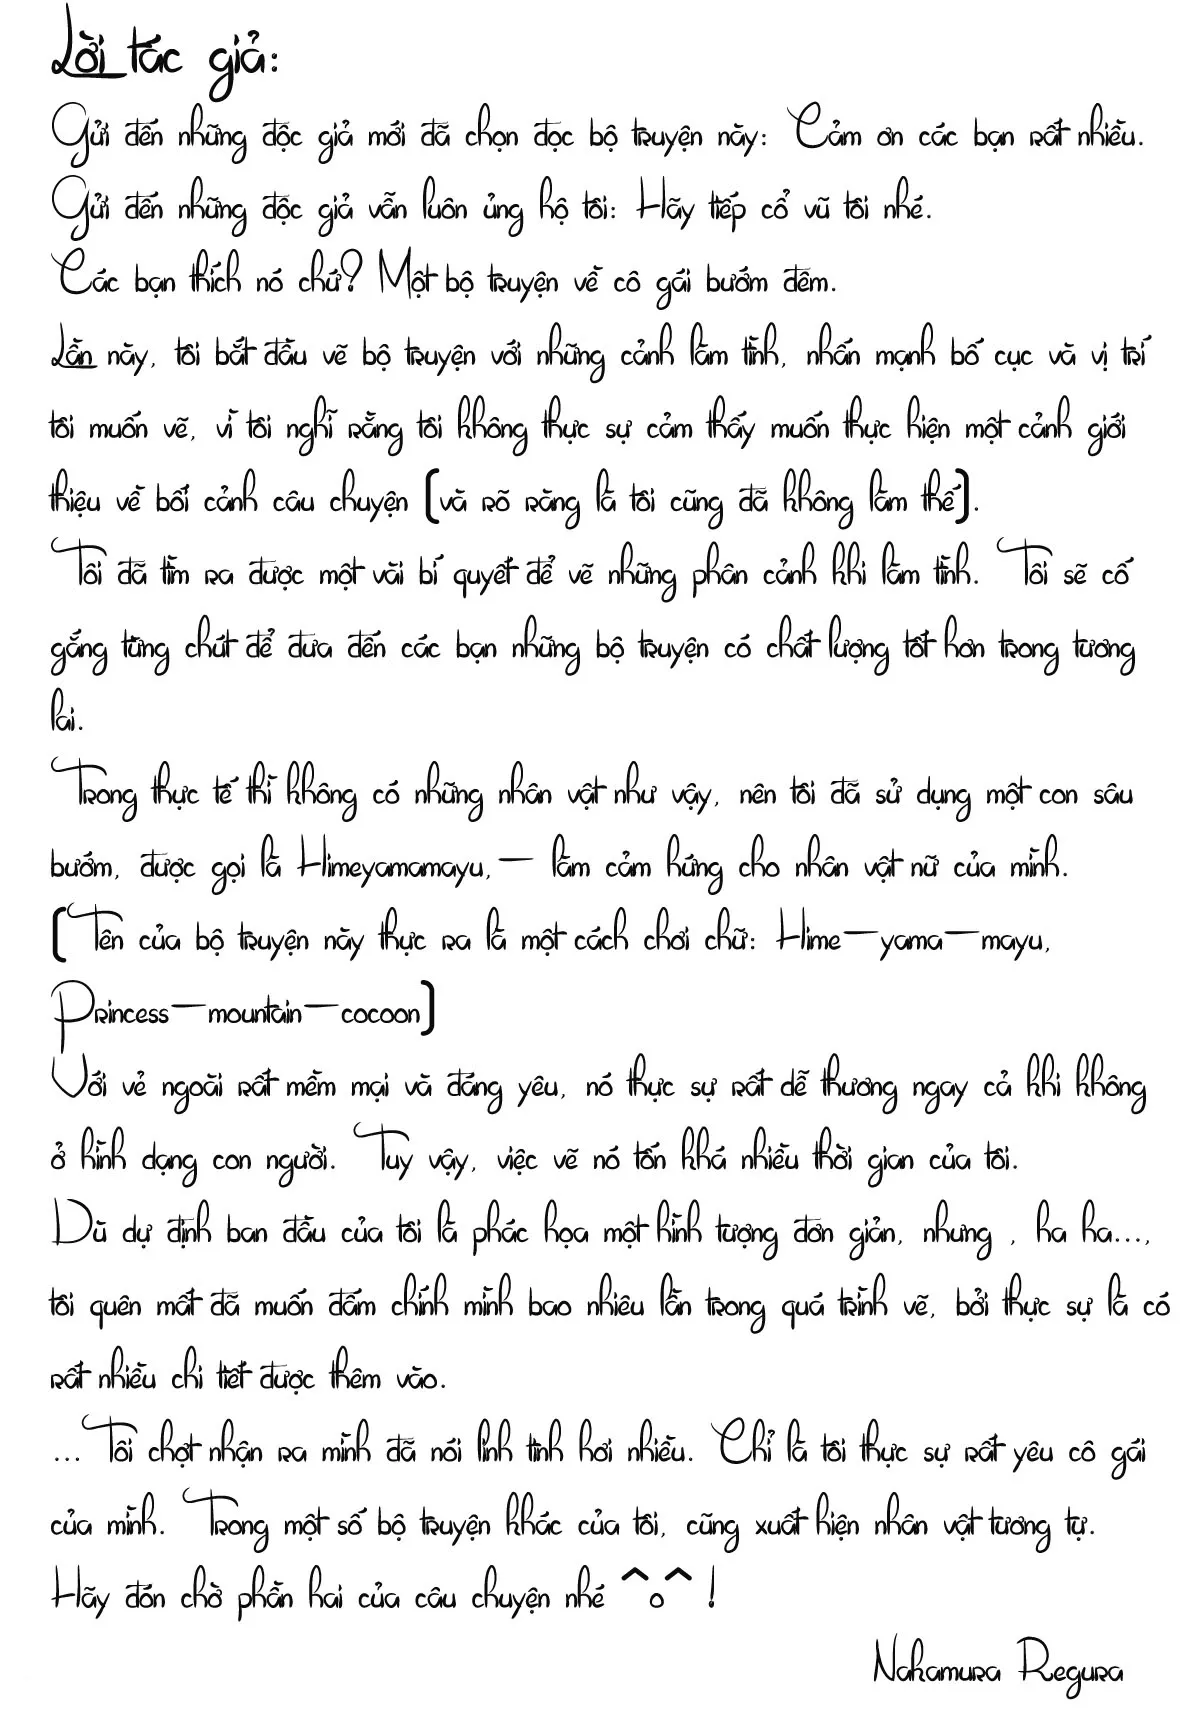 Lời tác giả:
Gửi đến những độc giả mới đã chọn đọc bộ truyện này: Cảm ơn các bạn rất nhiều.
Gửi đến những độc giả vẫn luôn ủng hộ tôi: Hãy tiếp cổ vũ tôi nhé.
Các bạn thích nó chứ? Một bộ truyện về cô gái bướm đêm.
Lần này, tôi bắt đầu vẽ bộ truyện với những cảnh làm tình, nhấn mạnh bố cục và vị trí
tôi muốn vẽ, vì tôi nghĩ rằng tôi không thực sự cảm thấy muốn thực hiện một cảnh giới
thiệu về bối cảnh câu chuyện (và rõ ràng là tôi cũng đã không làm thế).
Tôi đã tìm ra được một vài bí quyết để vẽ những phân cảnh khi làm tình. Tôi sẽ cố
gắng từng chút để đưa đến các bạn những bộ truyện có chất lượng tốt hơn trong tương
lai.
Trong thực tế thì không có những nhân vật như vậy, nên tôi đã sử dụng một con sâu
bướm, được gọi là Himeyamamayu,- làm cảm hứng cho nhân vật nữ của mình.
(Tên của bộ truyện này thực ra là một cách chơi chữ: Hime-yama-mayu,
Princess-mountain-cocoon)
Với vẻ ngoài rất mềm mại và đáng yêu, nó thực sự rất dễ thương ngay cả khi không
ở hình dạng con người. Tuy vậy, việc vẽ nó tốn khá nhiều thời gian của tôi.
Dù dự định ban đầu của tôi là phác họa một hình tượng đơn giản, nhưng , ha ha...,
tôi quên mất đã muốn đấm chính mình bao nhiêu lần trong quá trình vẽ, bởi thực sự là có
rất nhiều chi tiết được thêm vào.
...Tôi chợt nhận ra mình đã nói linh tinh hơi nhiều. Chỉ là tôi thực sự rất yêu cô gái
của mình. Trong một số bộ truyện khác của tôi, cũng xuất hiện nhân vật tương tự.
Hãy đón chờ phần hai của câu chuyện nhé ^o^ !
Nakamura Regura